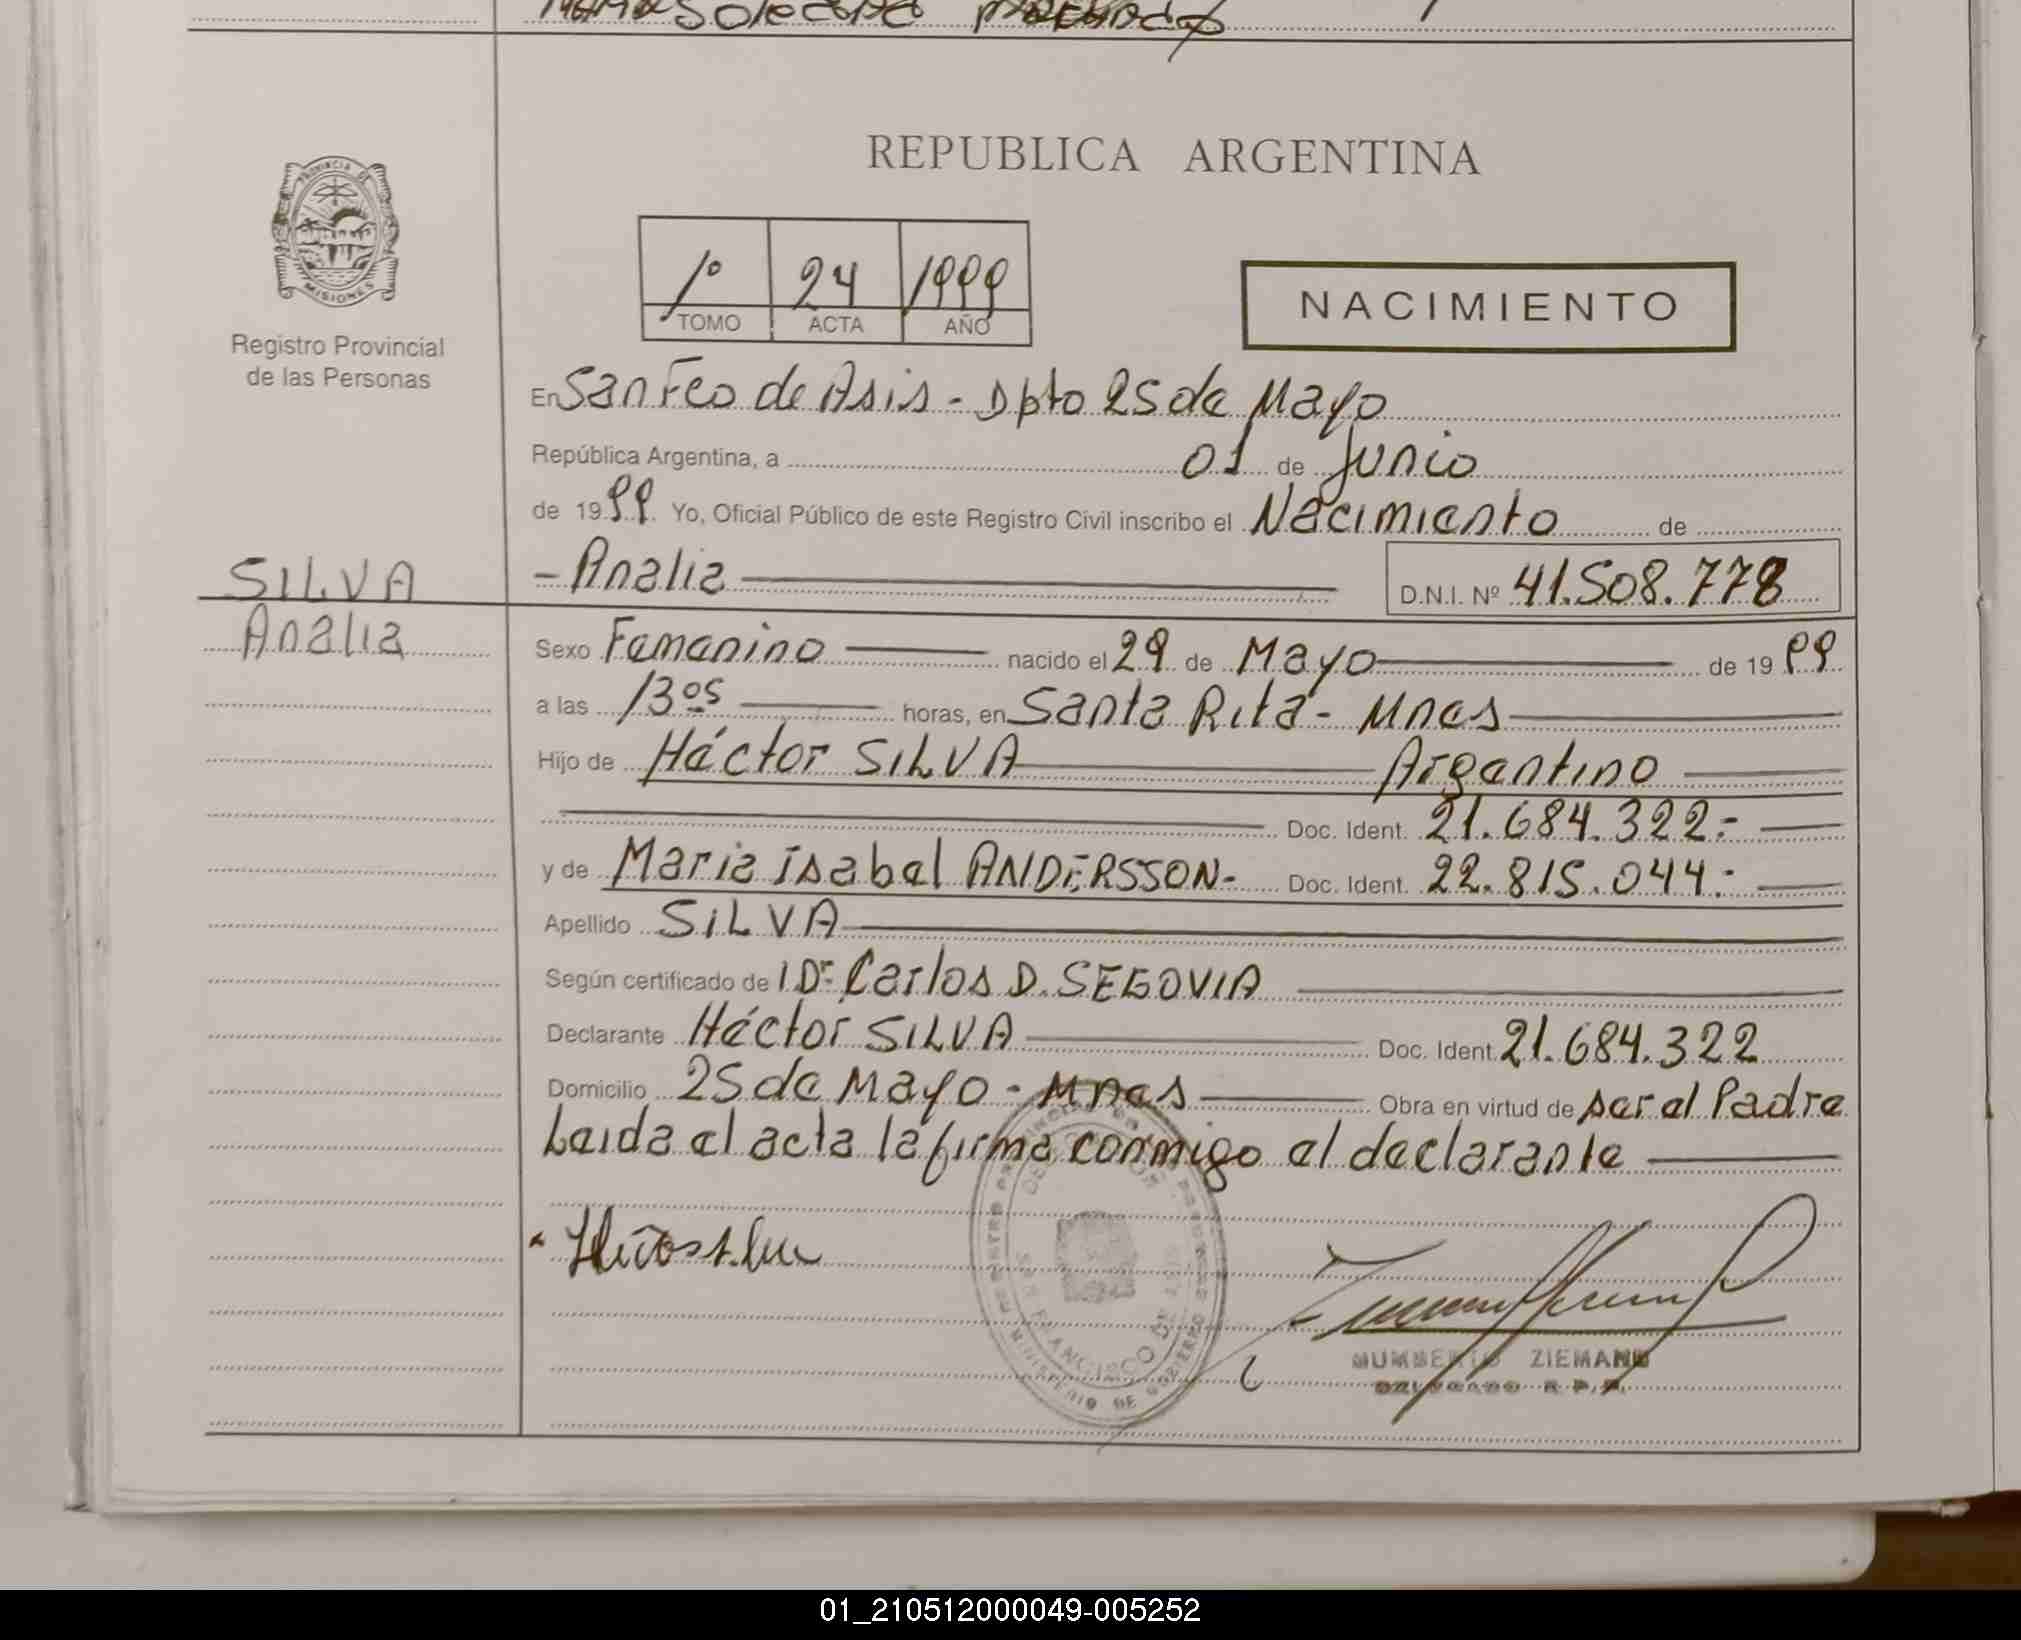 Soledad Machado
REPUBLICA ARGENTINA
PROVINCIA DE
MISIONES
Registro Provincial
de las Personas
1º 24 1999
TOMO ACTA AÑO
NACIMIENTO
En San Fco de Asis - Dpto 25 de Mayo
República Argentina, a 01 de Junio
de 1999 Yo, Oficial Público de este Registro Civil inscribo el Nacimiento de
SILVA
Analia
- Analia D.N.I. Nº 41.508.778
Sexo Femenino nacido el 29 de Mayo de 1999
a las 13 05 horas, en Santa Rita - Mnes
Hijo de Héctor SILVA Argentino
Doc. Ident. 21.684.322.-
y de Maria isabel ANDERSSON- Doc. Ident. 22.815.044.-
Apellido SILVA
Según certificado de Dr Carlos D. SEGOVIA
Declarante Héctor SILVA Doc. Ident. 21.684.322
Domicilio 25 de Mayo - Mnes Obra en virtud de ser el Padre
Leida el acta la firma conmigo el declarante
SAN FRANCISCO DE ASIS
MINISTERIO DE GOBIERNO
HUMBERTO ZIEMANN
DELEGADO R.P.P.
01_210512000049-005252